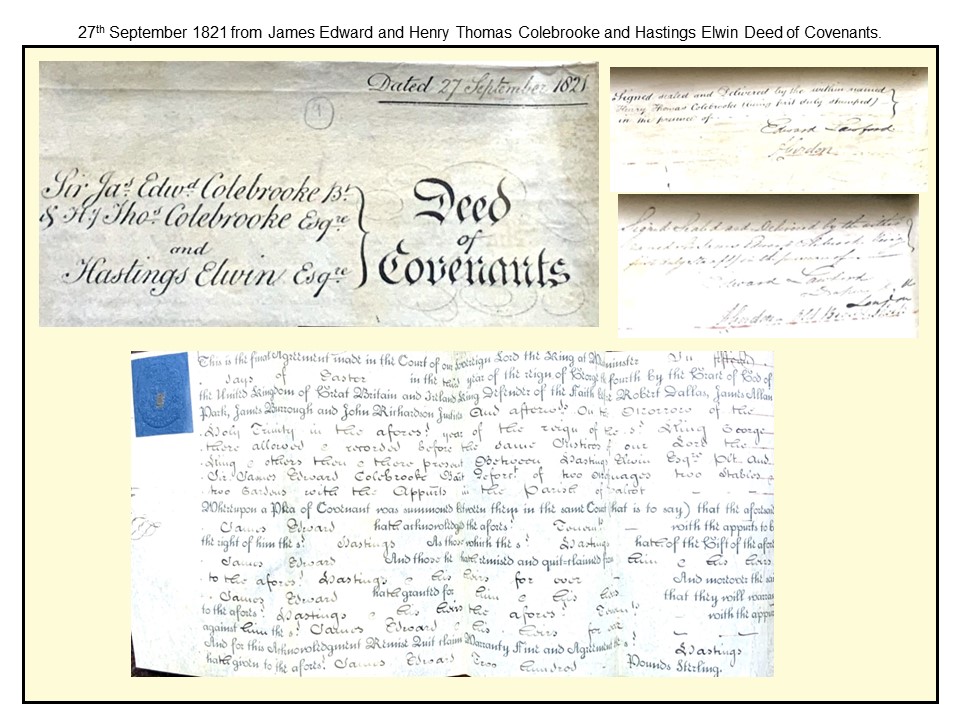 27th September 1821 from James Edward and Henry Thomas Colebrooke and Hastings Elwin Deed of Covenants.
Dated 27 September 1821
1
Sir Jas. Edwd. Colebrooke Bt.
& Hy. Thos. Colebrooke Esqre.
and
Hastings Elwin Esqre.
Deed
of
Covenants
Signed sealed and Delivered by the within named
Henry Thomas Colebrooke (being first duly stamped)
in the presence of
Edward Lawford
Signed Sealed and Delivered by the
first duly in the presence of
Edward Lawford
London
This is the final Agreement made in the Court of our Sovereign Lord the King at
days of Easter in the year of the reign of George the fourth by the Grace of God of
the United Kingdom of Great Britain and Ireland King Defender of the Faith Robert Dallas, James Allan
Park, James Burrough and John Richardson Justices And afterwds. On the Morrow of the
Holy Trinity in the aforesd. year of the reign of the sd. King George
there allowed & recorded before the same Justices of our Lord the
King & others then & there present Between Hastings Elwin Esqre. Plt. And
Sir James Edward Colebrooke Bart. Deforct. of two two Stables
two Gardens with the Appurts in the Parish of
Whereupon a Plea of Covenant was summoned between them in the same Court (that is to say) that the aforesaid
James Edward hath acknowledged the aforesd. Tenemts. with the appurts to b
the right of him the sd. Hastings As those which the sd. Hastings hath of the Gift of the afore
James Edward And those he hath remised and quit-claimed from him & his heirs
to the aforesd. Hastings & his heirs for ever And moreover the sai
James Edward hath granted for him & his heirs that they will warran
to the aforesd. Hastings & his heirs the aforesd. Tenemts. with the appur
against him the sd. James Edward & his heirs for ever
And for this Acknowledgment Remise Quit claim Warranty Fine and Agreement the sd. Hastings
hath given to the aforesd. James Edward Two hundred Pounds Sterling.